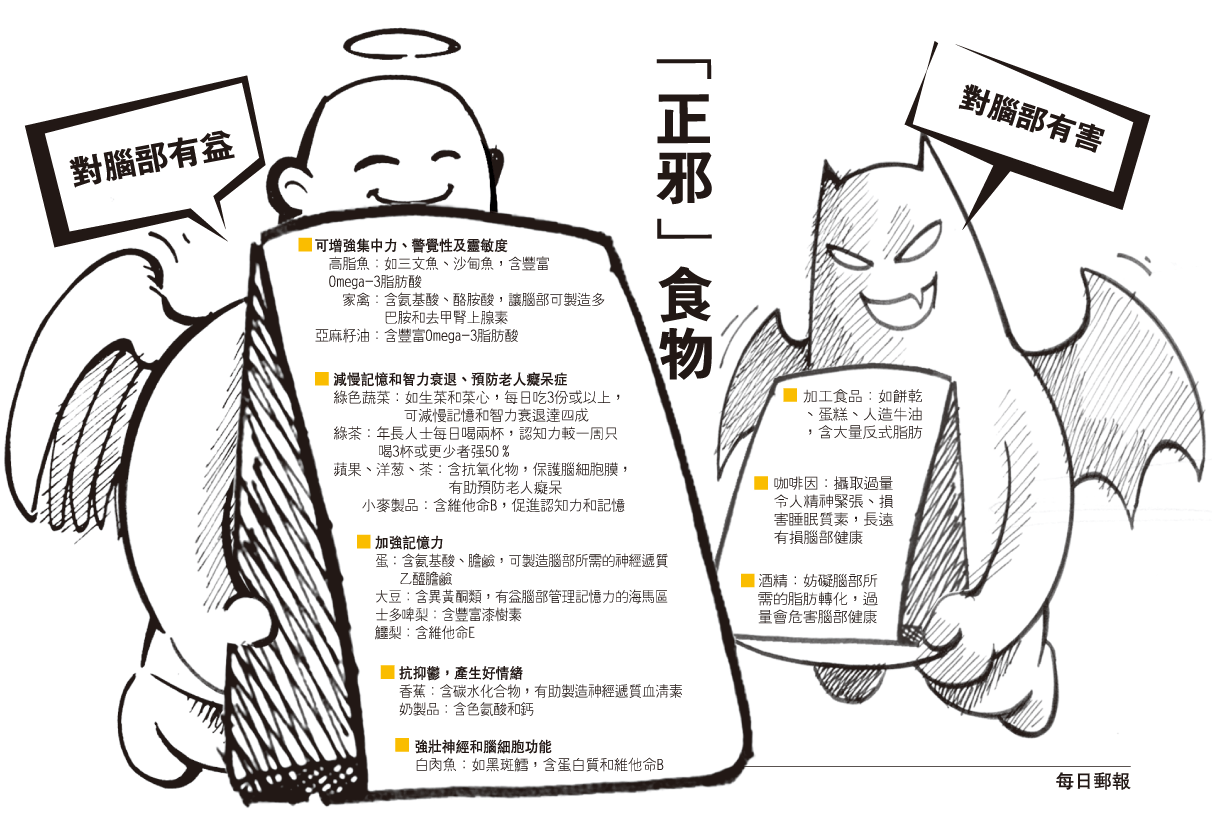 「正邪」食物
對腦部有益
■可增強集中力、警覺性及靈敏度
高脂魚：如三文魚、沙甸魚，含豐富
Omega-3脂肪酸
家禽：含氨基酸、酪胺酸，讓腦部可製造多
巴胺和去甲腎上腺素
亞麻籽油：含豐富Omega-3脂肪酸
■減慢記憶和智力衰退、預防老人癡呆症
綠色蔬菜：如生菜和菜心，每日吃3份或以上，
可減慢記憶和智力衰退達四成
綠茶：年長人士每日喝兩杯，認知力較一周只
喝3杯或更少者强50％
蘋果、洋葱、茶：含抗氧化物，保護腦細胞膜，
有助預防老人癡呆
小麥製品：含維他命B，促進認知力和記憶
■加強記憶力
蛋：含氨基酸、膽鹼，可製造腦部所需的神經遞質
乙醯膽鹼
大豆：含異黃酮類，有益腦部管理記憶力的海馬區
士多啤梨：含豐富漆樹素
鱷梨：含維他命E
■抗抑鬱，產生好情緒
香蕉：含碳水化合物，有助製造神經遞質血清素
奶製品：含色氨酸和鈣
■強壯神經和腦細胞功能
白肉魚：如黑斑鱈，含蛋白質和維他命B
對腦部有害
■加工食品：如餅乾
、蛋糕、人造牛油
，含大量反式脂肪
■咖啡因：攝取過量
令人精神緊張、損
害睡眠質素，長遠
有損腦部健康
■酒精：妨礙腦部所
需的脂肪轉化，過
量會危害腦部健康
每日郵報